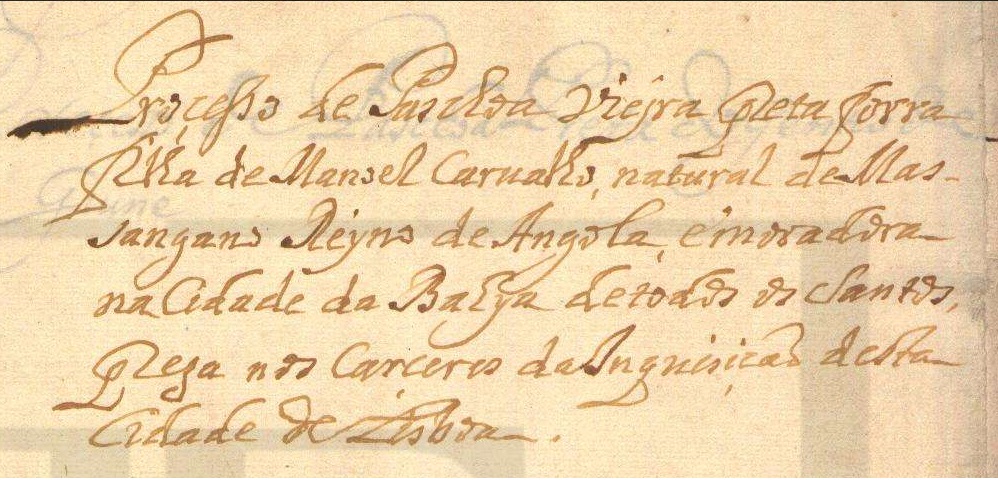 Proçesso de Paschoa Vieyra preta forra
filha de Manoel Carualho, natural de Mas-
sangano Reyno de Angola, e moradora
na Cidade da Bahya de todos os Santos,
preza nos Carçeres da Inquisição desta
Cidade de Lisboa.